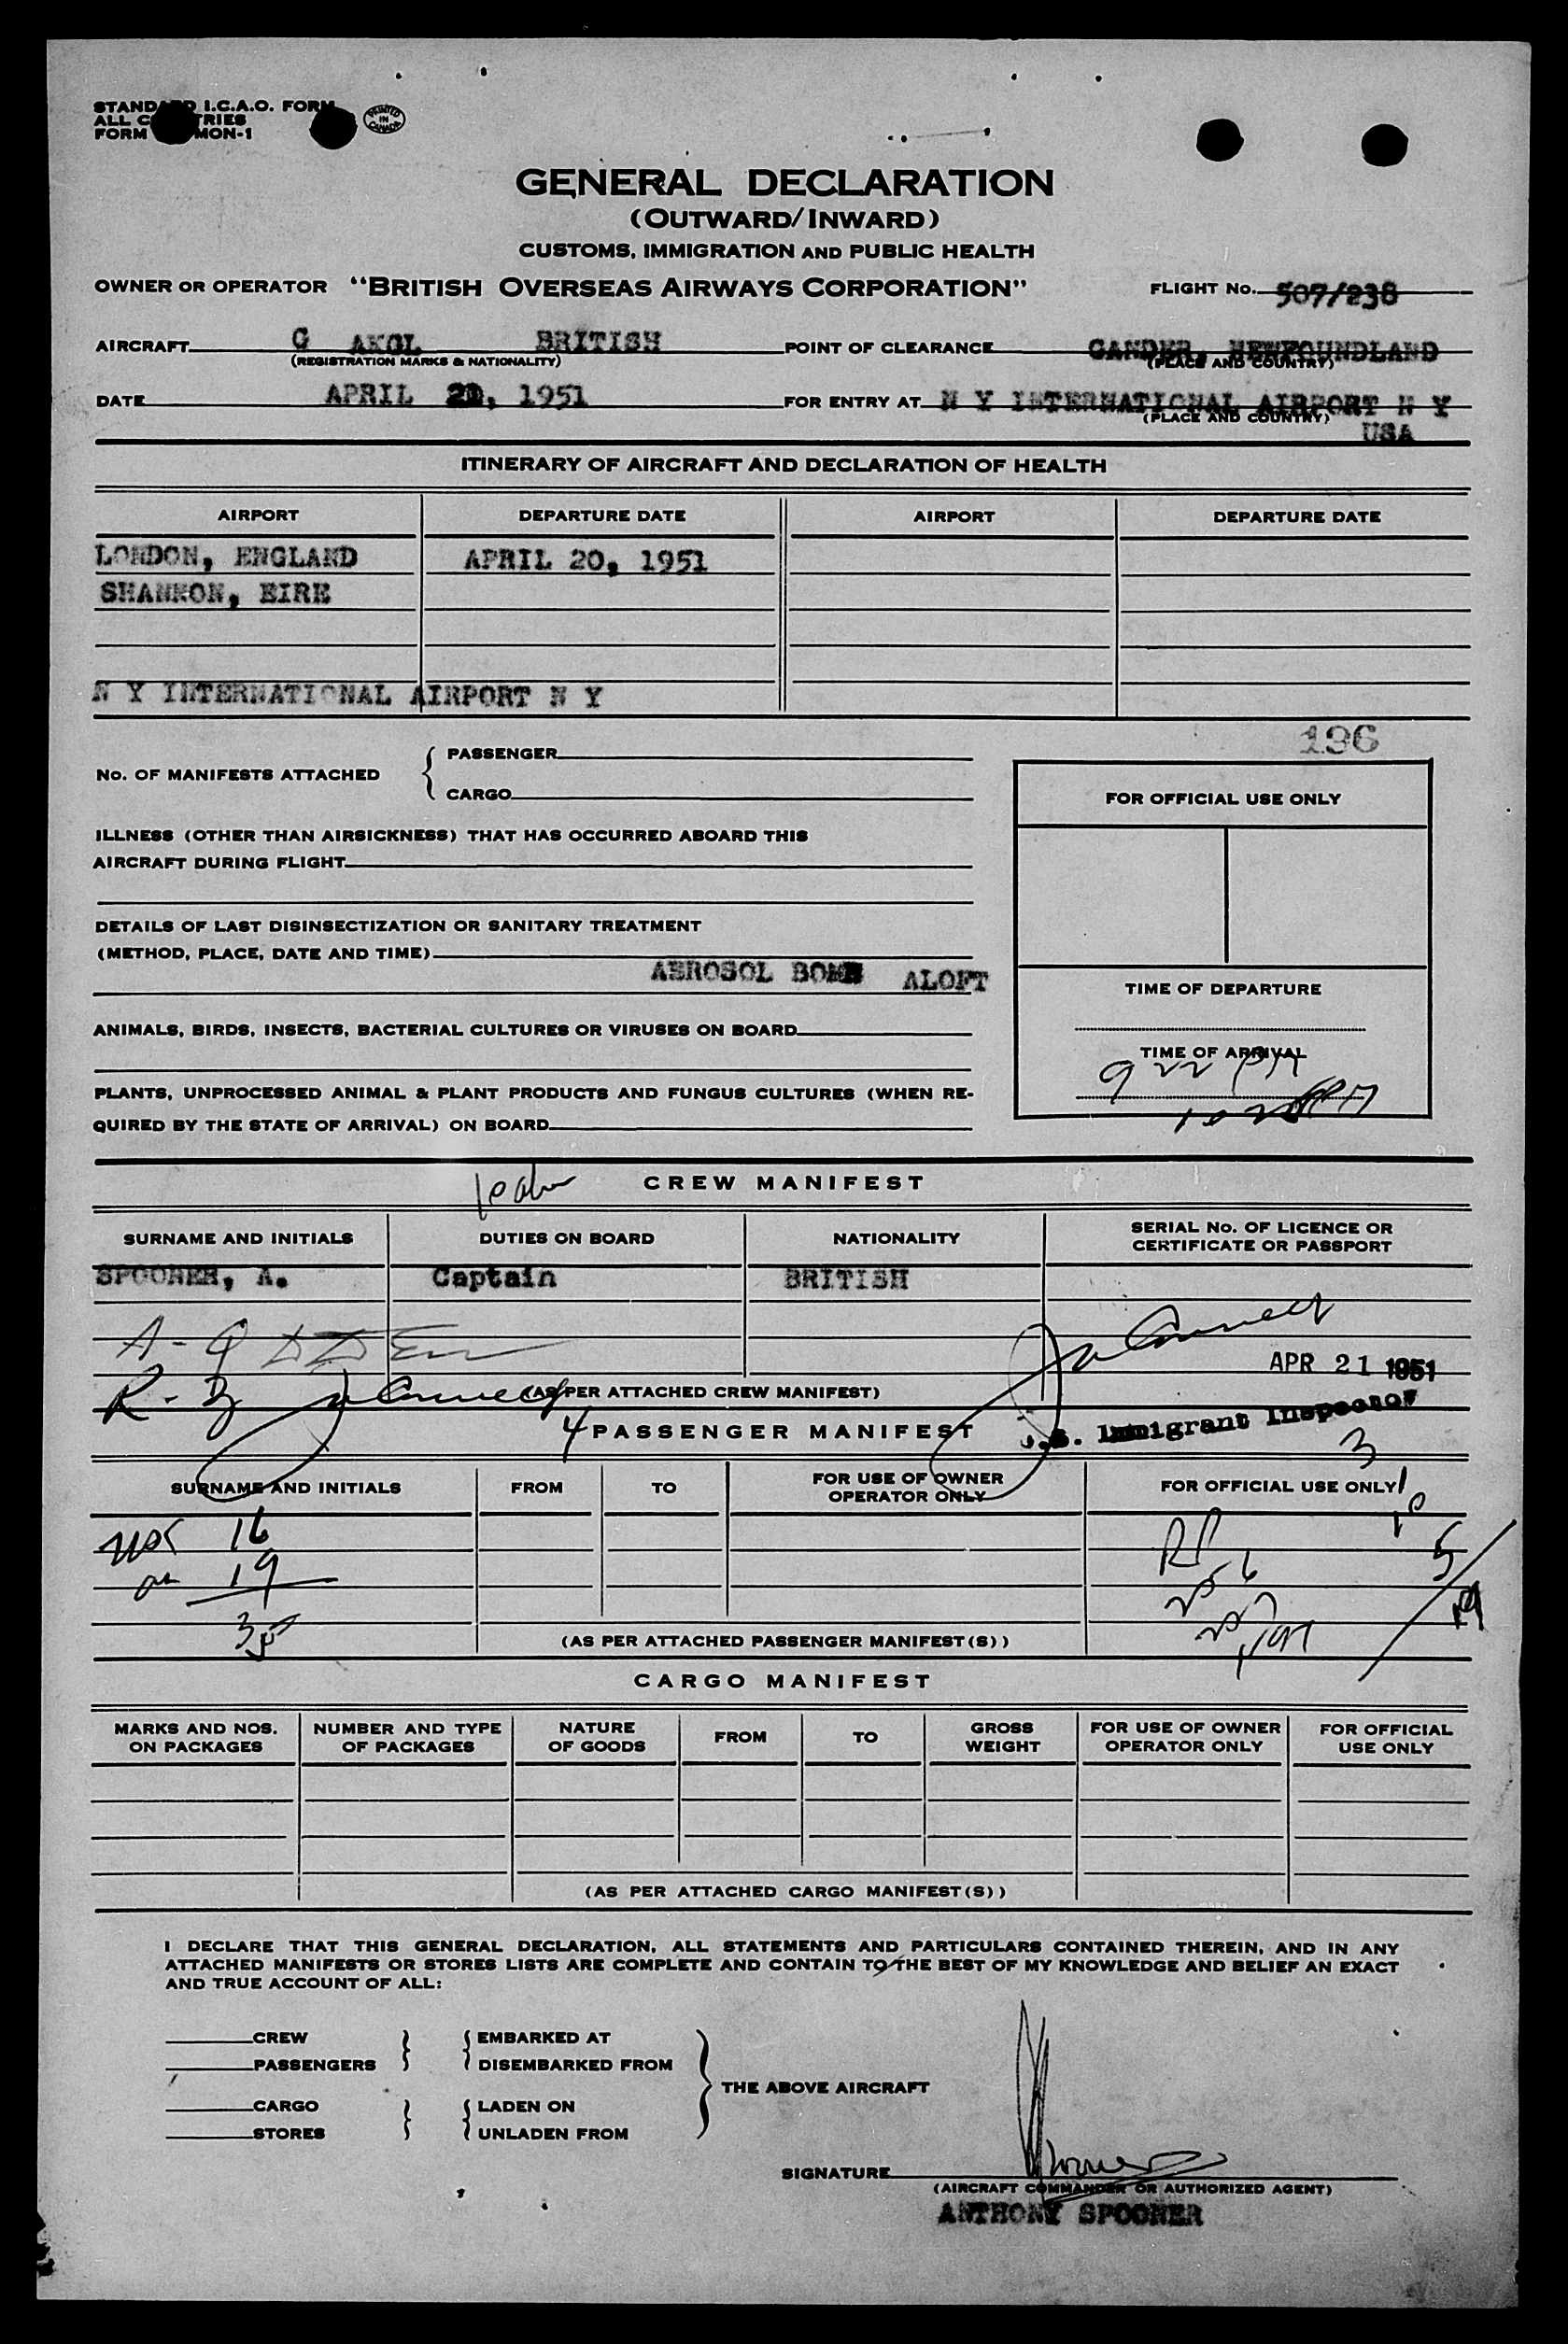 STANDARD I.C.A.O. FORM
ALL COUNTRIES
FORM MON-1
PRINTED IN CANADA
GENERAL DECLARATION
(OUTWARD/INWARD)
CUSTOMS, IMMIGRATION AND PUBLIC HEALTH
OWNER OR OPERATOR "BRITISH OVERSEAS AIRWAYS CORPORATION" FLIGHT No. 507/238
AIRCRAFT G AKGL BRITISH POINT OF CLEARANCE GANDER, NEWFOUNDLAND
(REGISTRATION MARKS & NATIONALITY) (PLACE AND COUNTRY)
DATE APRIL 21, 1951 FOR ENTRY AT N Y INTERNATIONAL AIRPORT N Y
(PLACE AND COUNTRY) USA
ITINERARY OF AIRCRAFT AND DECLARATION OF HEALTH
AIRPORT DEPARTURE DATE AIRPORT DEPARTURE DATE
LONDON, ENGLAND APRIL 20, 1951
SHANNON, EIRE
N Y INTERNATIONAL AIRPORT N Y
196
No. OF MANIFESTS ATTACHED { PASSENGER
CARGO
FOR OFFICIAL USE ONLY
ILLNESS (OTHER THAN AIRSICKNESS) THAT HAS OCCURRED ABOARD THIS
AIRCRAFT DURING FLIGHT
DETAILS OF LAST DISINSECTIZATION OR SANITARY TREATMENT
(METHOD, PLACE, DATE AND TIME)
AEROSOL BOMB ALOFT
TIME OF DEPARTURE
ANIMALS, BIRDS, INSECTS, BACTERIAL CULTURES OR VIRUSES ON BOARD
TIME OF ARRIVAL
9 22 PM
PLANTS, UNPROCESSED ANIMAL & PLANT PRODUCTS AND FUNGUS CULTURES (WHEN RE-
QUIRED BY THE STATE OF ARRIVAL) ON BOARD
CREW MANIFEST
SURNAME AND INITIALS DUTIES ON BOARD NATIONALITY SERIAL No. OF LICENCE OR
CERTIFICATE OR PASSPORT
SPOONER, A. Captain BRITISH
APR 21 1951
(AS PER ATTACHED CREW MANIFEST)
U.S. Immigrant Inspector
4 PASSENGER MANIFEST
3
SURNAME AND INITIALS FROM TO FOR USE OF OWNER
OPERATOR ONLY FOR OFFICIAL USE ONLY
16
19
35
(AS PER ATTACHED PASSENGER MANIFEST(S))
CARGO MANIFEST
MARKS AND NOS.
ON PACKAGES NUMBER AND TYPE
OF PACKAGES NATURE
OF GOODS FROM TO GROSS
WEIGHT FOR USE OF OWNER
OPERATOR ONLY FOR OFFICIAL
USE ONLY
(AS PER ATTACHED CARGO MANIFEST(S))
I DECLARE THAT THIS GENERAL DECLARATION, ALL STATEMENTS AND PARTICULARS CONTAINED THEREIN, AND IN ANY
ATTACHED MANIFESTS OR STORES LISTS ARE COMPLETE AND CONTAIN TO THE BEST OF MY KNOWLEDGE AND BELIEF AN EXACT
AND TRUE ACCOUNT OF ALL:
CREW } { EMBARKED AT
PASSENGERS DISEMBARKED FROM
} THE ABOVE AIRCRAFT
CARGO } { LADEN ON
STORES UNLADEN FROM
SIGNATURE Spooner
(AIRCRAFT COMMANDER OR AUTHORIZED AGENT)
ANTHONY SPOONER